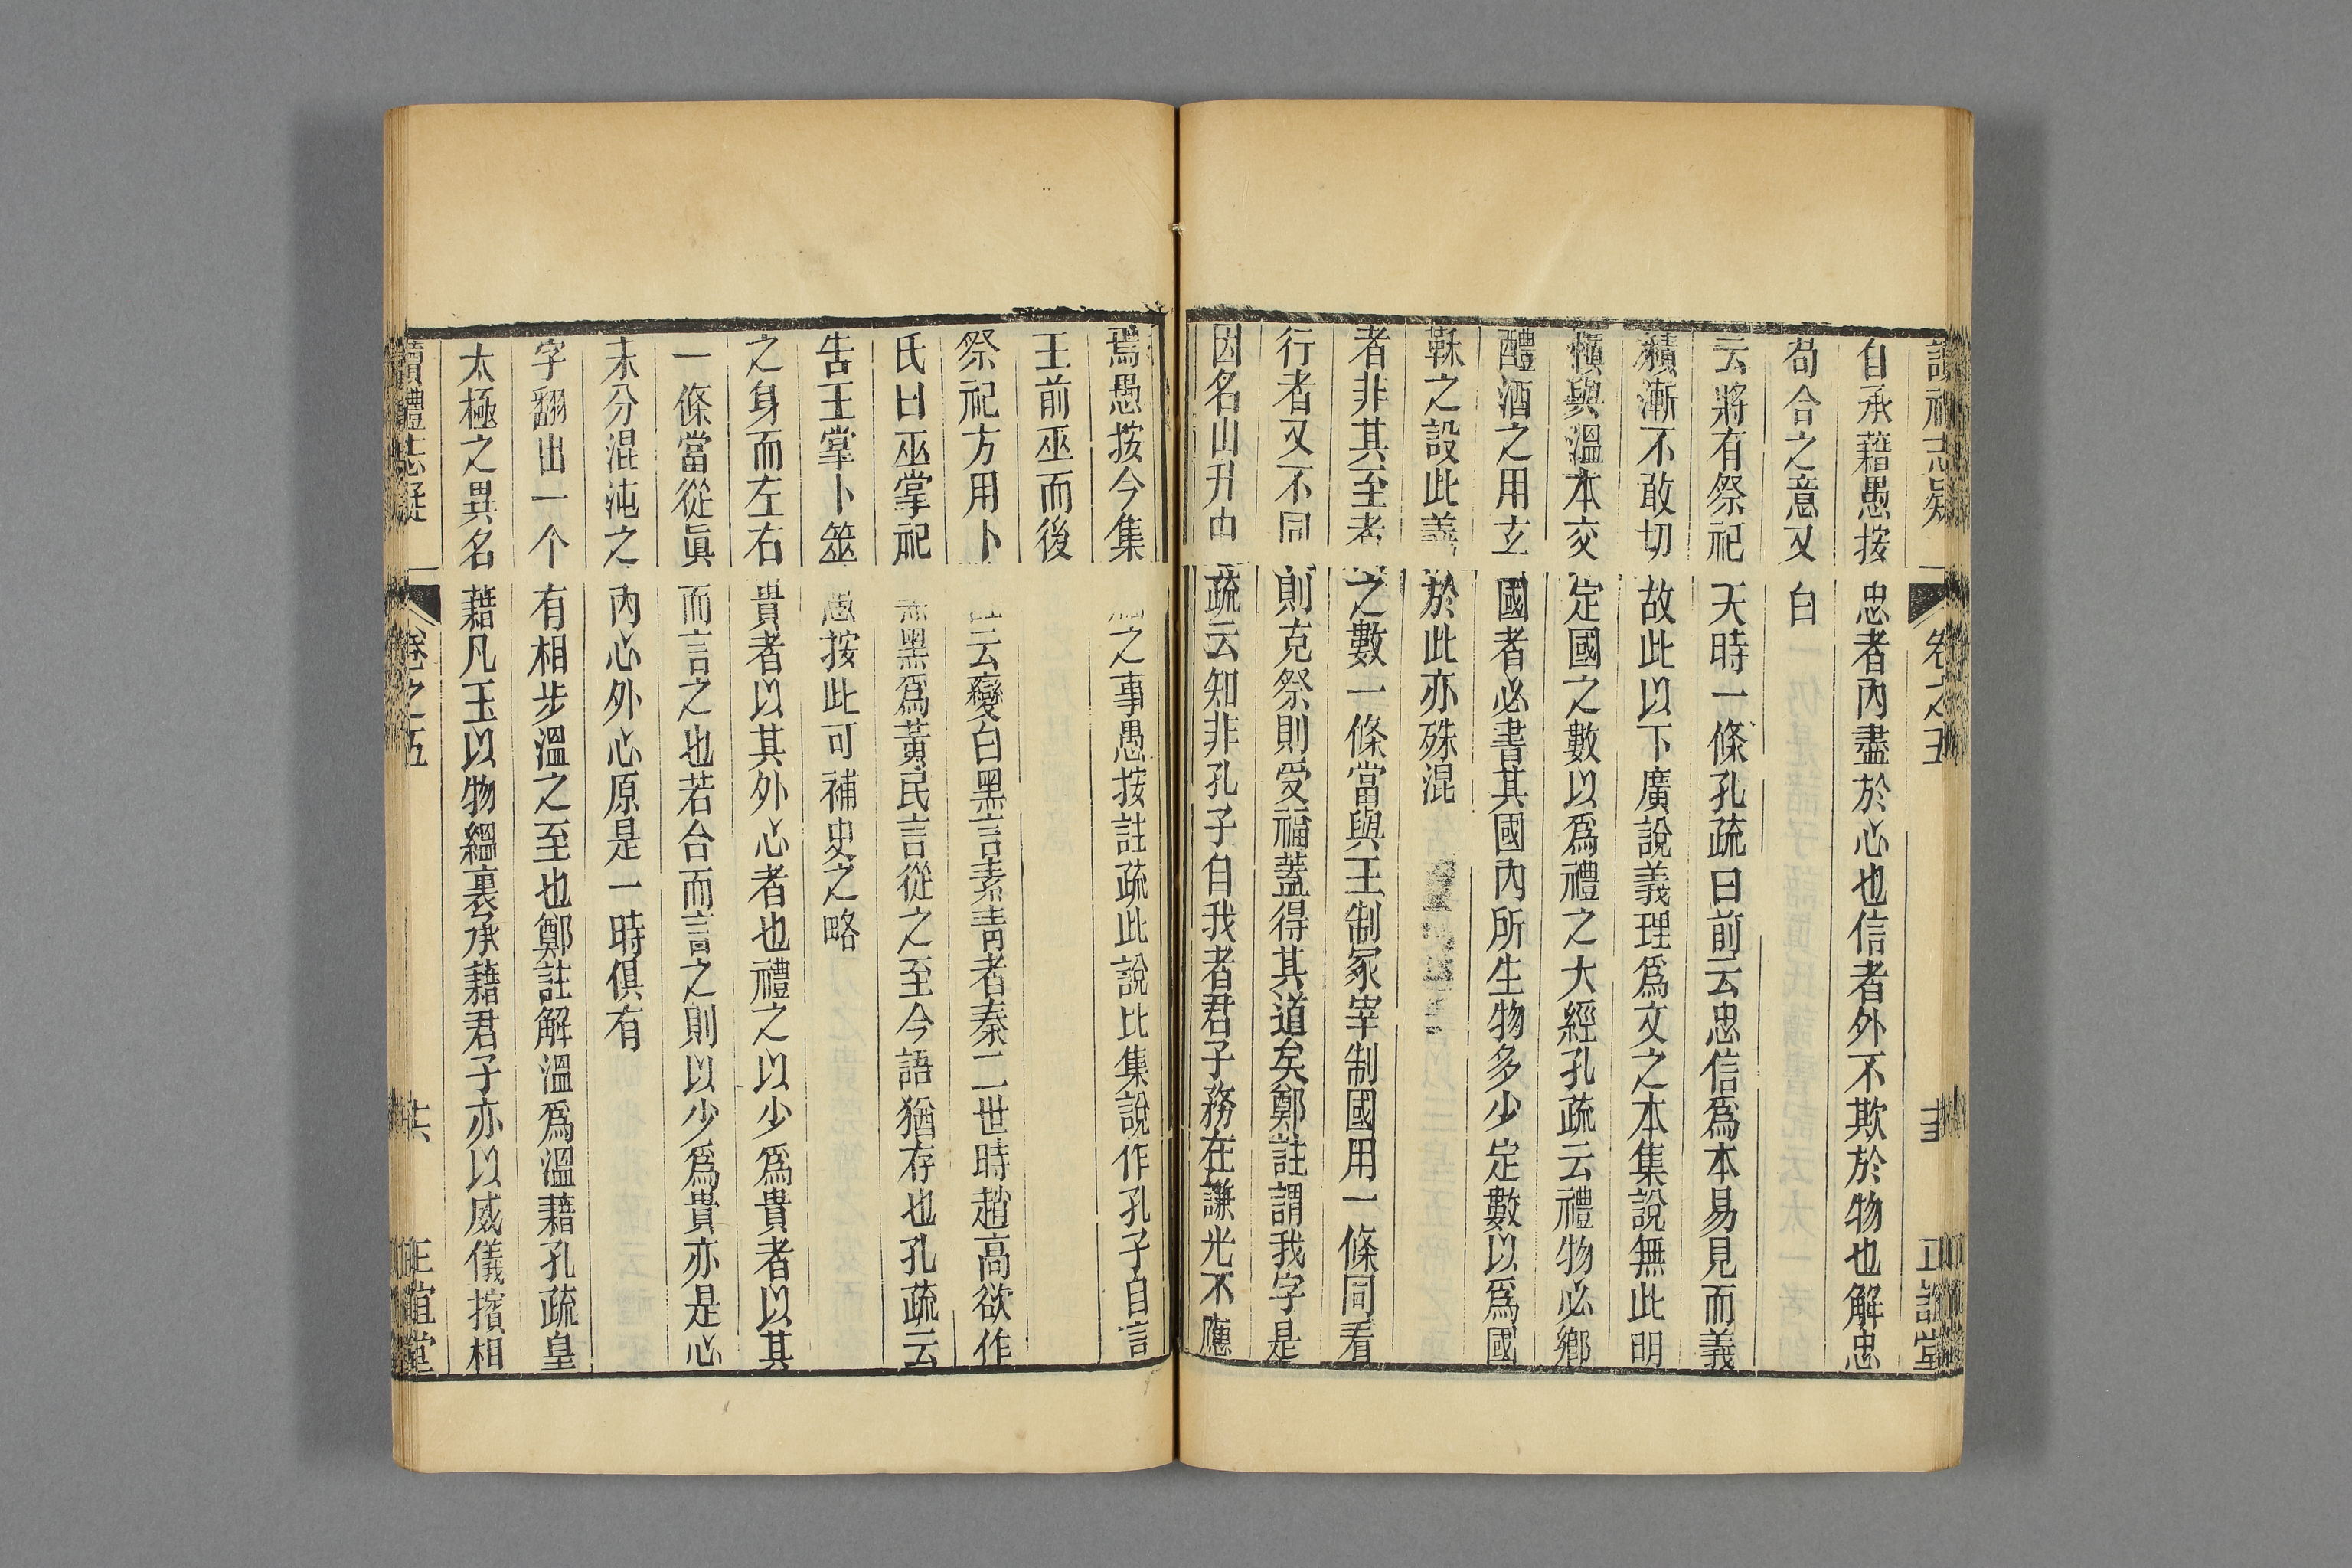 讀禮志疑 卷之五 正誼堂
自承藉愚按忠者內盡於心也信者外不欺於物也解忠
苟合之意又白
云將有祭祀天時一條孔疏曰前云忠信爲本易見而義
積漸不敢切故此以下廣說義理爲文之本集說無此明
慎與溫本交定國之數以爲禮之大經孔疏云禮物必鄉
醴酒之用玄國者必書其國內所生物多少定數以爲國
鞂之設此義於此亦殊混
者非其至者之數一條當與王制冢宰制國用一條同看
行者又不同則克祭則受福蓋得其道矣鄭註謂我字是
因名山升中疏云知非孔子自我者君子務在謙光不應
焉愚按今集之事愚按註疏此說比集說作孔子自言
王前巫而後
祭祀方用卜云變白黑言素靑者秦二世時趙高欲作
氏曰巫掌祀黑爲黃民言從之至今語猶存也孔疏云
告王掌卜筮愚按此可補史之略
之身而左右貴者以其外心者也禮之以少爲貴者以其
一條當從眞而言之也若合而言之則以少爲貴亦是心
未分混沌之內心外心原是一時俱有
字翻出一个有相步溫之至也鄭註解溫爲溫藉孔疏皇
太極之異名藉凡玉以物縕裏承藉君子亦以威儀擯相
讀禮志疑 卷之五 六 正誼堂